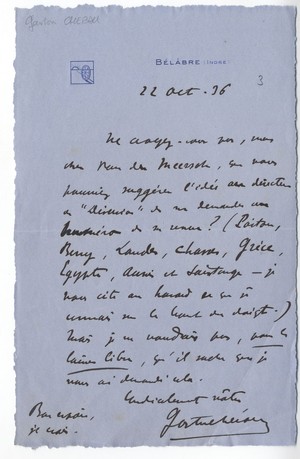 Gaston Chérau
BÉLÂBRE (INDRE)
3
22 oct. 36
Ne croyez-vous pas, mon
cher Van den Meersch, que vous
pourriez suggérer l'idée au directeur
de de me demander un
de sa revue ? (Poitou,
Berry, Landes, Chasses, Grèce,
Egypte, Aunis et Saintonge — je
vous cite au hasard ce que je
connais sur le bout du doigt.)
Mais je ne voudrais pas, pour le
laisser libre, qu'il sache que je
vous ai demandé cela.
Cordialement vôtre
Gaston Chérau
Bon espoir,
je crois.